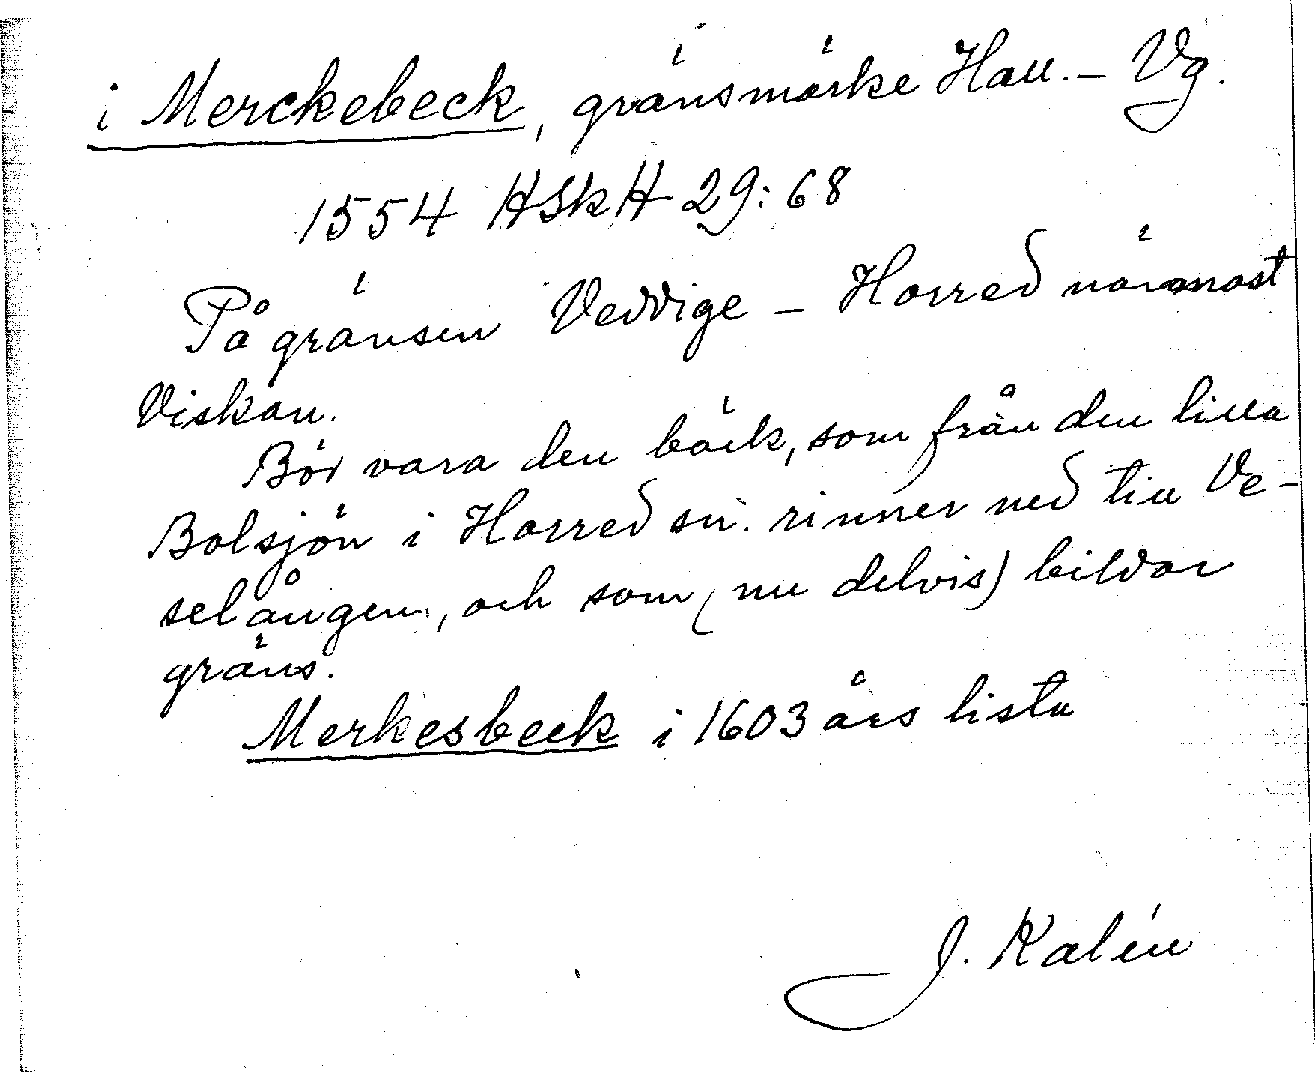 i Merckebeck, gränsmärke Hall. - Vg.
1554 HSkH 29:68
På gränsen Veddige - Horred närmast
Viskan.
Bör vara den bäck, som från den lilla
Bolsjön i Horred sn. rinner ned till Ve-
selången, och som (nu delvis) bildar
gräns.
Merkesbeck i 1603 års lista
J. Kalén